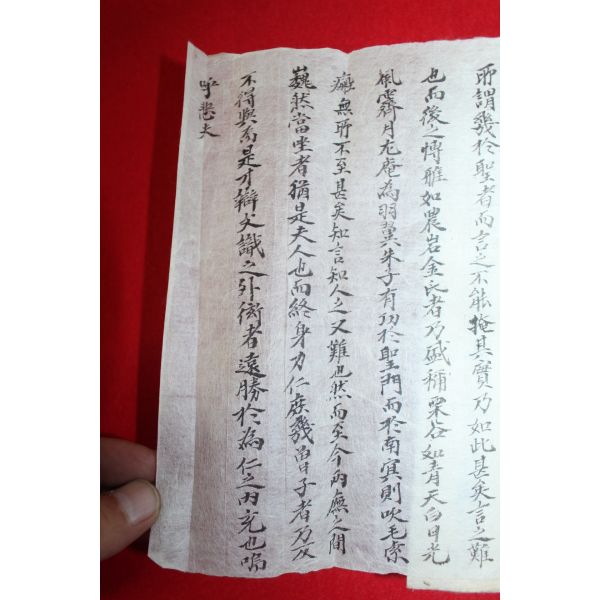 所謂幾於聖者而言之不能掩其實乃如此甚矣言之難
也而後之博雅如農岩金氏者乃碱稱栗谷如青天白日光
風霽月尤庵為羽翼朱子有功於聖門而於南冥則吹毛索
疵無所不至甚矣知言知人之又難也然而至今兩廡之間
巍然當坐者猶是夫人也而終身力仁庶幾曾子者乃反
不得與焉是才辯文識之外衒者遠勝於為仁之內充也嗚
呼悲夫